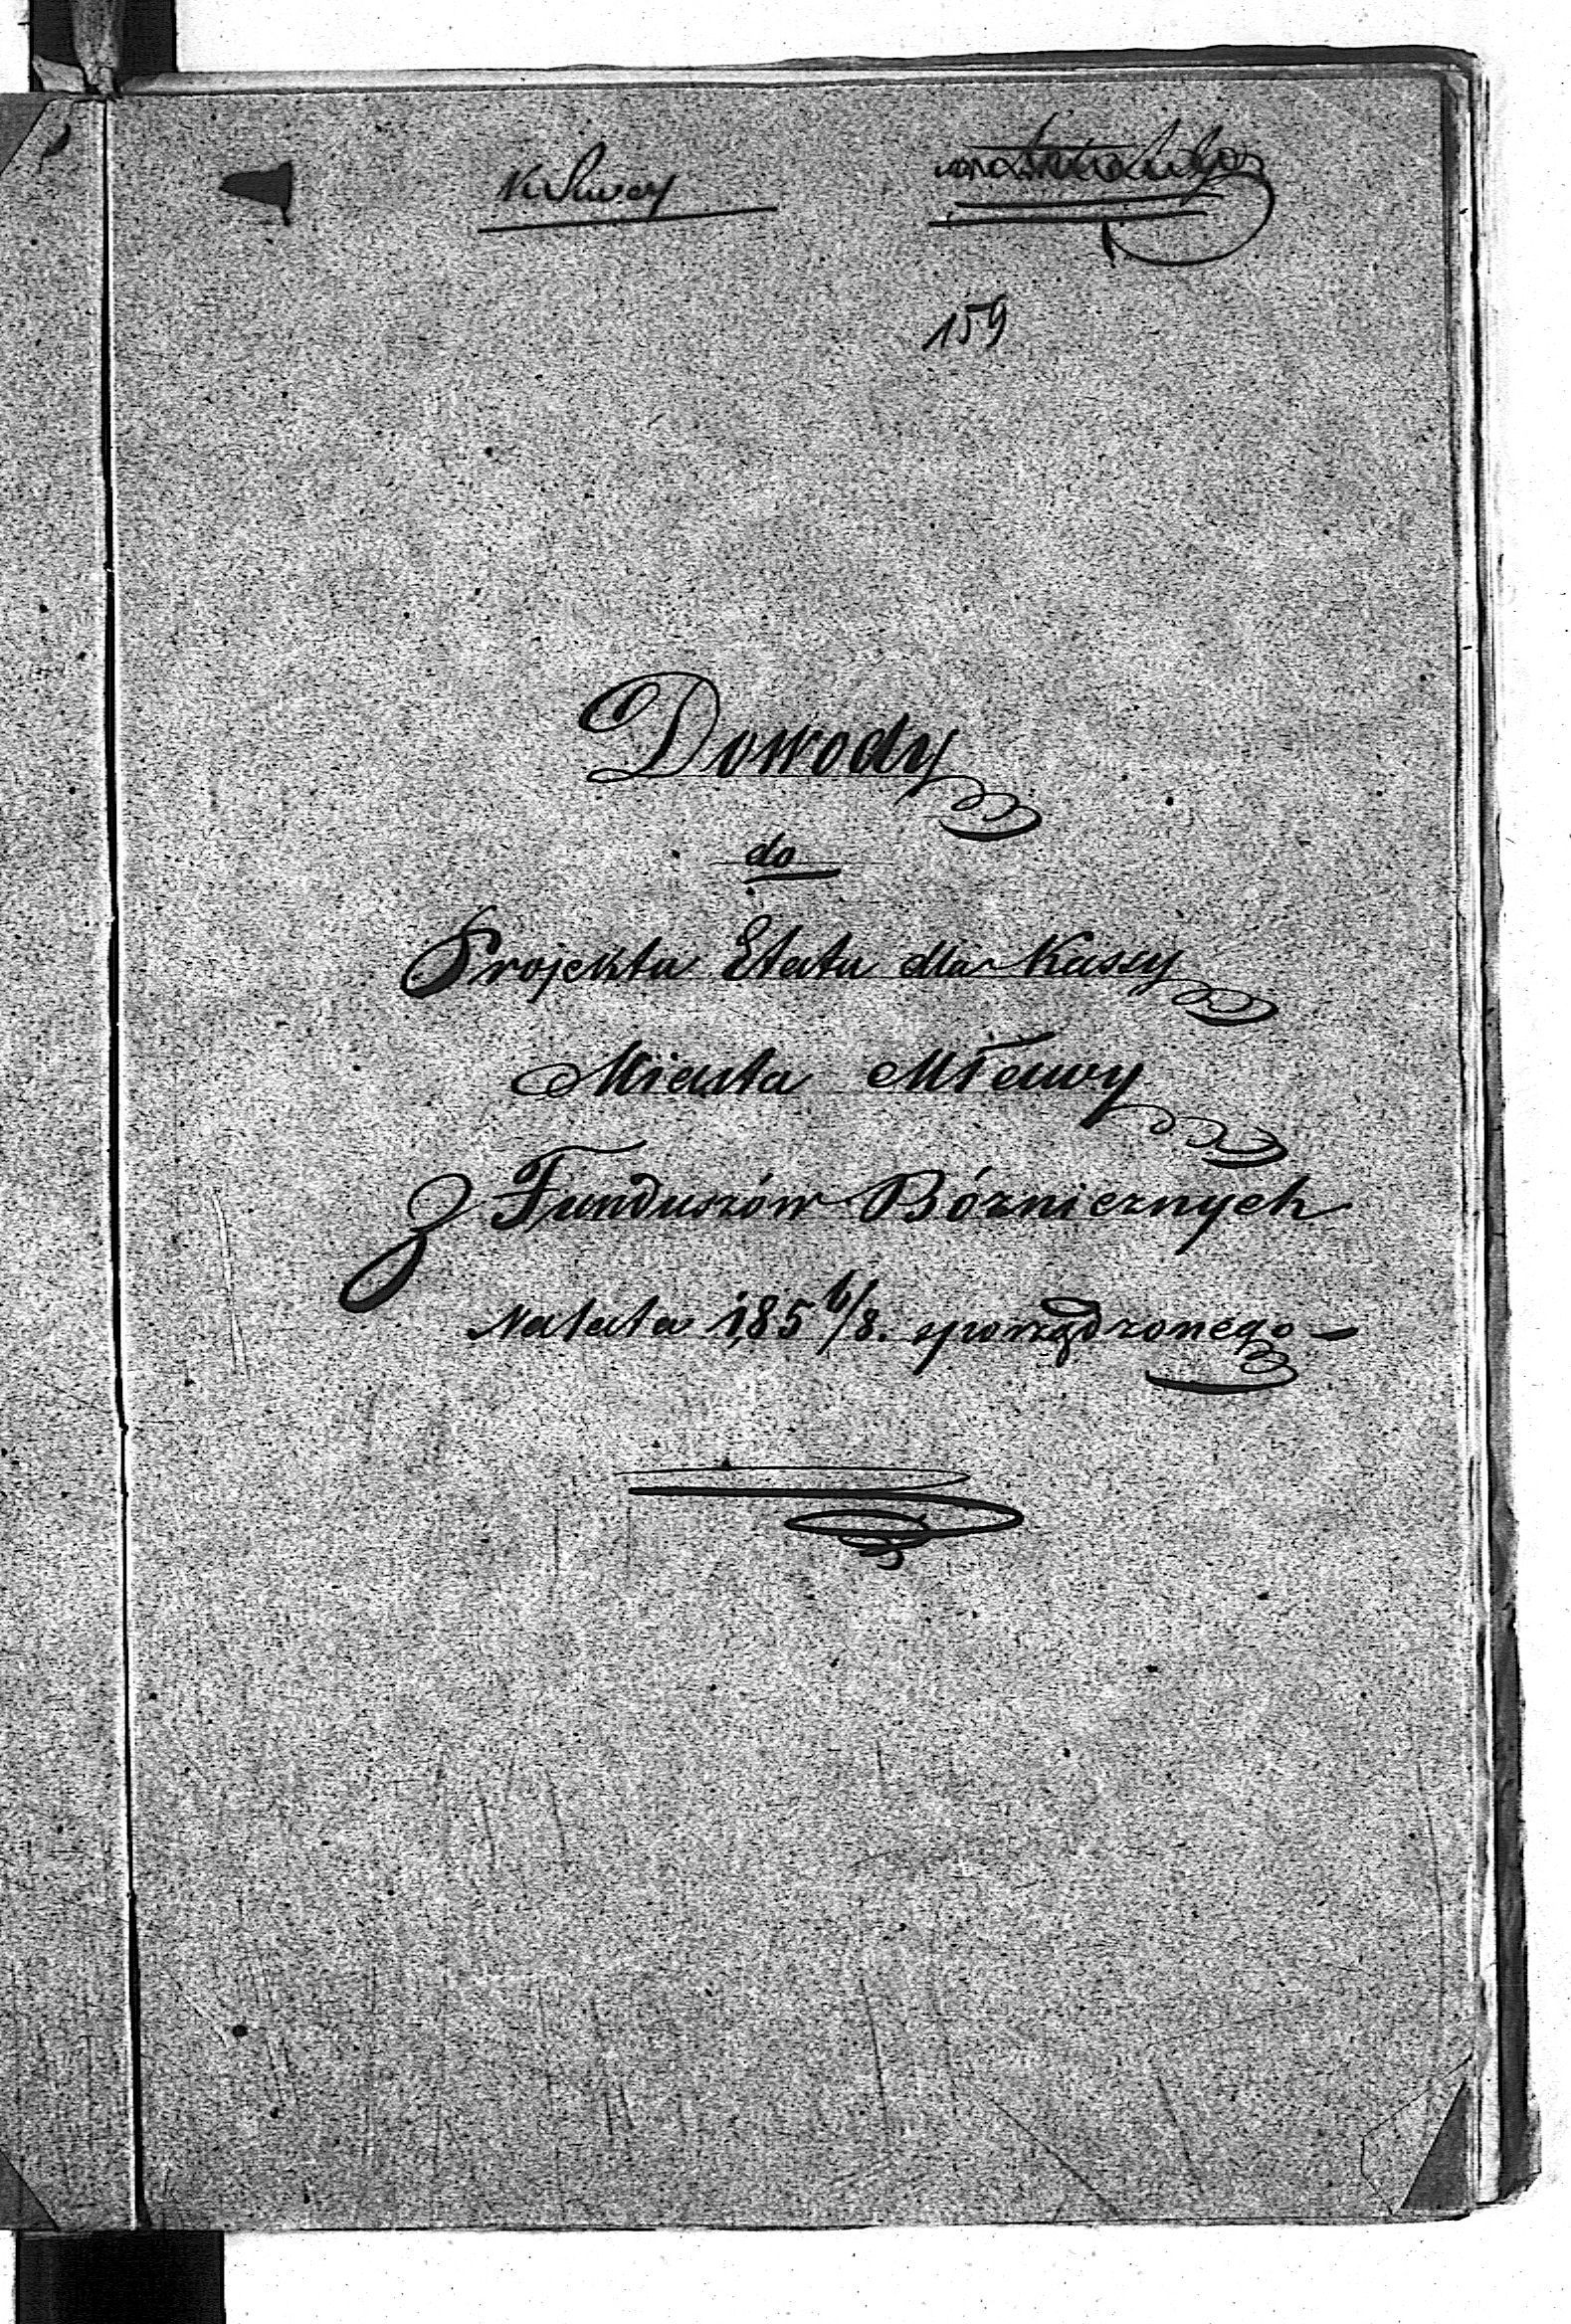 159
Dowody
do
Projektu Etatu dla Kassy
Miasta Mławy
Z Funduszów Bóżnicznych
Na lata 185 6/8. sporządzonego –